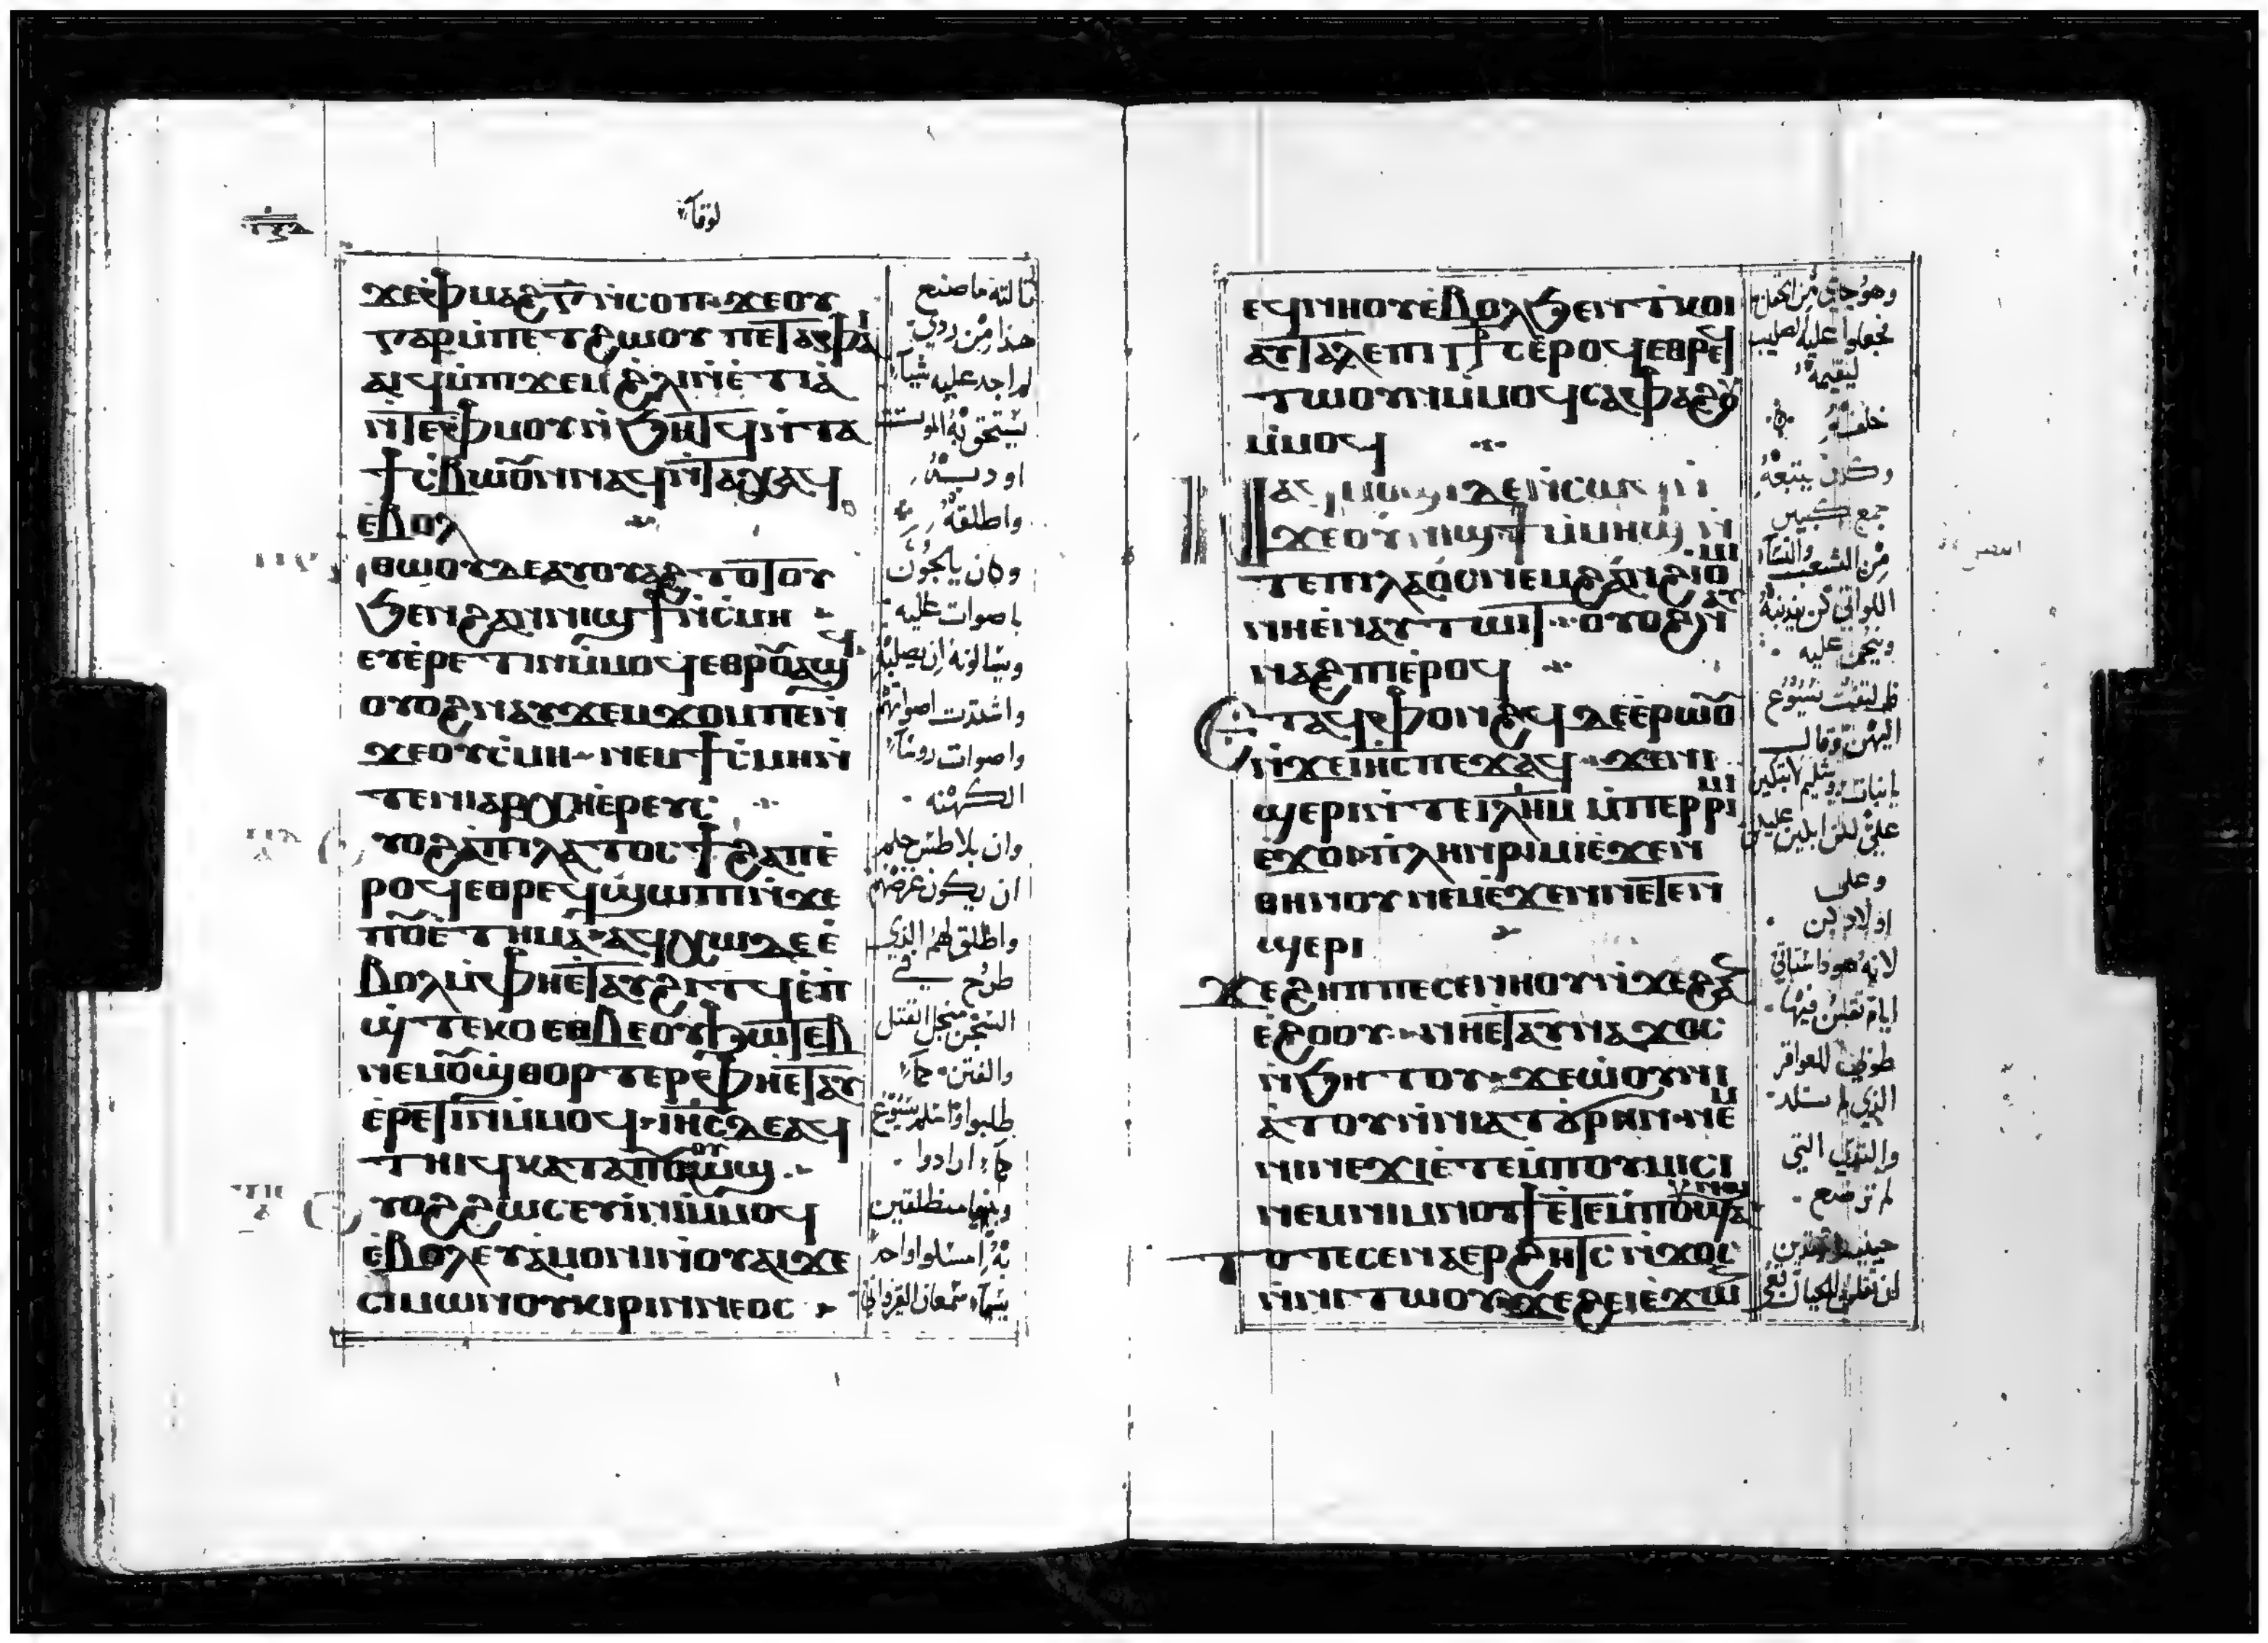 لوقا
ϫⲉⲫⲙⲁϩⲅ̅ⲛ̀ⲥⲟⲡ ϫⲉⲟⲩ
ⲅⲁⲣⲙ̀ⲡⲉⲧϩⲱⲟⲩ ⲡⲉⲧⲁⲫⲁⲓ
ⲁⲓϥⲙ̀ⲡⲓϫⲉⲙ ϩⲗⲓⲛ̀ⲉ̀ⲧⲓⲁ̀
ⲛ̀ⲧⲉⲫⲙⲟⲩⲛ̀ϧⲏⲧϥ ⲛ̀ⲧⲁ
ϯⲥ̀ⲃⲱⲟⲩⲛⲛⲁϥ ⲛ̀ⲧⲁⲭⲁϥ
ⲉ̀ⲃⲟⲗ
ⲑⲱⲟⲩⲇⲉⲁⲩⲟⲩⲁϩⲧⲟⲧⲟⲩ
ϧⲉⲛϩⲁⲛⲛⲓϣϯⲛ̀ⲥ̀ⲙⲏ
ⲉⲩⲉ̀ⲣⲉⲧⲓⲛⲙ̀ⲙⲟϥ ⲉⲑⲣⲟⲩⲁϣϥ
ⲟⲩⲟϩⲛⲁⲩϫⲉⲙϫⲟⲙⲡⲉⲛ̀
ϫⲉⲟⲩⲥ̀ⲙⲏ ⲛⲉⲙϯⲥ̀ⲙⲏⲛ̀
ⲧⲉⲛⲓⲁⲣⲭⲏⲉ̀ⲣⲉⲩⲥ
ⲩⲟϩⲁⲡⲓⲗⲁⲧⲟⲥ ϯϩⲁⲡⲉ̀
ⲣⲟϥ ⲉⲑⲣⲉϥϣⲱⲡⲓⲛ̀ϫⲉ
ⲡⲟⲩⲉ̀ⲧⲏⲙⲁ ⲁϥⲭⲱⲇⲉⲉ̀
ⲃⲟⲗⲙ̀ⲫⲏⲉ̀ⲧⲁⲩϩⲓⲧϥ ⲉ̀ⲡ
ϣⲧⲉⲕⲟ ⲉⲑⲃⲉⲟⲩϧⲱⲧⲉⲃ
ⲛⲉⲙⲟⲩϣⲑⲟⲣⲧⲉⲣ ⲫⲏⲉ̀ⲧⲁⲩ
ⲉ̀ⲣⲉⲧⲓⲛⲙ̀ⲙⲟϥ ⲓⲏⲥ̅ⲇⲉⲁϥ
ⲧⲏⲓϥ ⲕⲁⲧⲁⲡⲟⲩⲟⲩⲱϣ
ⲩⲟϩϩⲱⲥⲉⲩⲓⲛⲓⲙ̀ⲙⲟϥ
ⲉ̀ⲃⲟⲗ ⲉⲩⲁ̀ⲙⲟⲛⲓⲛ̀ⲟⲩⲁⲓϫⲉ
ⲥⲓⲙⲱⲛⲟⲩⲕⲓⲣⲓⲛⲛⲉⲟⲥ
ثالثه ما صنع
هذا من ردي
لم اجد عليه شيا
يستحق به الموت
او دبه
واطلقه
وكان يلجون
باصوات عليه
ويسالونه ان يصلبه
واشتدت اصواتهم
واصوات روسا
الكهنه
وان بلاطس حكم
ان يكون غرضهم
واطلق لهم الذي
طرح في
السجن من اجل القتل
والفتن كما
طلبوا واسلم يسوع
كما ارادوا
وبينما منطلقين
به امسكوا واحد
يسما سمعان القيرواني
ⲉϥⲛⲏⲟⲩⲉ̀ⲃⲟⲗϧⲉⲛⲧⲕⲟⲓ
ⲁⲩⲧⲁⲗⲉⲡⲓⲥⲧⲥⲉ̀ⲣⲟϥ ⲉⲑⲣⲉϥ
ⲧⲱⲟⲩⲛⲙ̀ⲙⲟϥ ⲥⲁⲫⲁϩⲟⲩ
ⲙ̀ⲙⲟϥ
ⲛⲁϥⲙⲟϣⲓⲇⲉⲛ̀ⲥⲱϥ ⲛ̀
ϫⲉⲟⲩⲛⲓϣϯⲙ̀ⲙⲏϣ ⲛ̀
ⲧⲉⲡⲓⲗⲁⲟⲥ ⲛⲉⲙϩⲁⲛϩⲓⲟⲙⲓ
ⲛⲏⲉ̀ⲛⲁⲩⲧⲱⲓⲧ ⲟⲩⲟϩⲛⲁⲩ
ⲛⲁϩⲡⲓⲉ̀ⲣⲟϥ
ⲉⲧⲁϥⲫⲟⲛϩϥ ⲇⲉⲉ̀ⲣⲱⲟⲩ
ⲛ̀ϫⲉⲓⲏⲥ̅ⲡⲉϫⲁϥ ϫⲉⲛⲓ
ϣⲉⲣⲓⲛ̀ⲧⲉⲓ̅ⲗ̅ⲏ̅ⲙ̅ ⲙ̀ⲡⲉⲣⲣⲓⲙⲓ
ⲉ̀ϫⲟⲓ ⲡⲗⲏⲛⲣⲓⲙⲓⲉ̀ϫⲉⲛ
ⲑⲏⲛⲟⲩ ⲛⲉⲙⲉ̀ϫⲉⲛⲛⲉⲧⲉⲛ
ϣⲉⲣⲓ
ϫⲉϩⲏⲡⲡⲉⲥⲉⲛⲏⲟⲩⲛ̀ϫⲉϩⲁⲛ
ⲉ̀ϩⲟⲟⲩ ⲛⲏⲉ̀ⲧⲁⲩⲛⲁϫⲟⲥ
ⲛ̀ϧⲏⲧⲟⲩ ϫⲉⲱⲟⲩⲛⲓ
ⲁ̀ⲧⲟⲩⲛ̀ⲛⲓⲁⲧϭⲣⲏⲛ ⲛⲉⲙ
ⲛⲓⲛⲉϫⲓⲉ̀ⲧⲉⲙ̀ⲡⲟⲩⲙⲓⲥⲓ
ⲛⲉⲙⲛⲓⲙⲛⲟϯ ⲉ̀ⲧⲉⲙ̀ⲡⲟⲩϣⲁⲛϣ
ⲧⲟⲧⲉⲥⲉⲛⲁⲉⲣϩⲏⲧⲥ ⲛ̀ϫⲟⲥ
ⲛ̀ⲛⲓⲧⲱⲟⲩ ϫⲉϩⲉⲓⲉ̀ϫⲱⲛ
وهو جاي من الحقل
فجعلوا عليه الصليب
ليقيمه
خلفه
وكان يتبعه
جمع كبير
من الشعب والنسا
اللواتي كن يندبنه
وينحن عليه
فالتفت يسوع
اليهن وقال
يابنات يروشليم لا تبكين
علي لكن ابكين عليكن
وعلى
اولادكن
لانه هوذا ستاتي
ايام تقلن فيها
طوبى للعواقر
الذي لم تلد
والثدي التي
لم ترضع